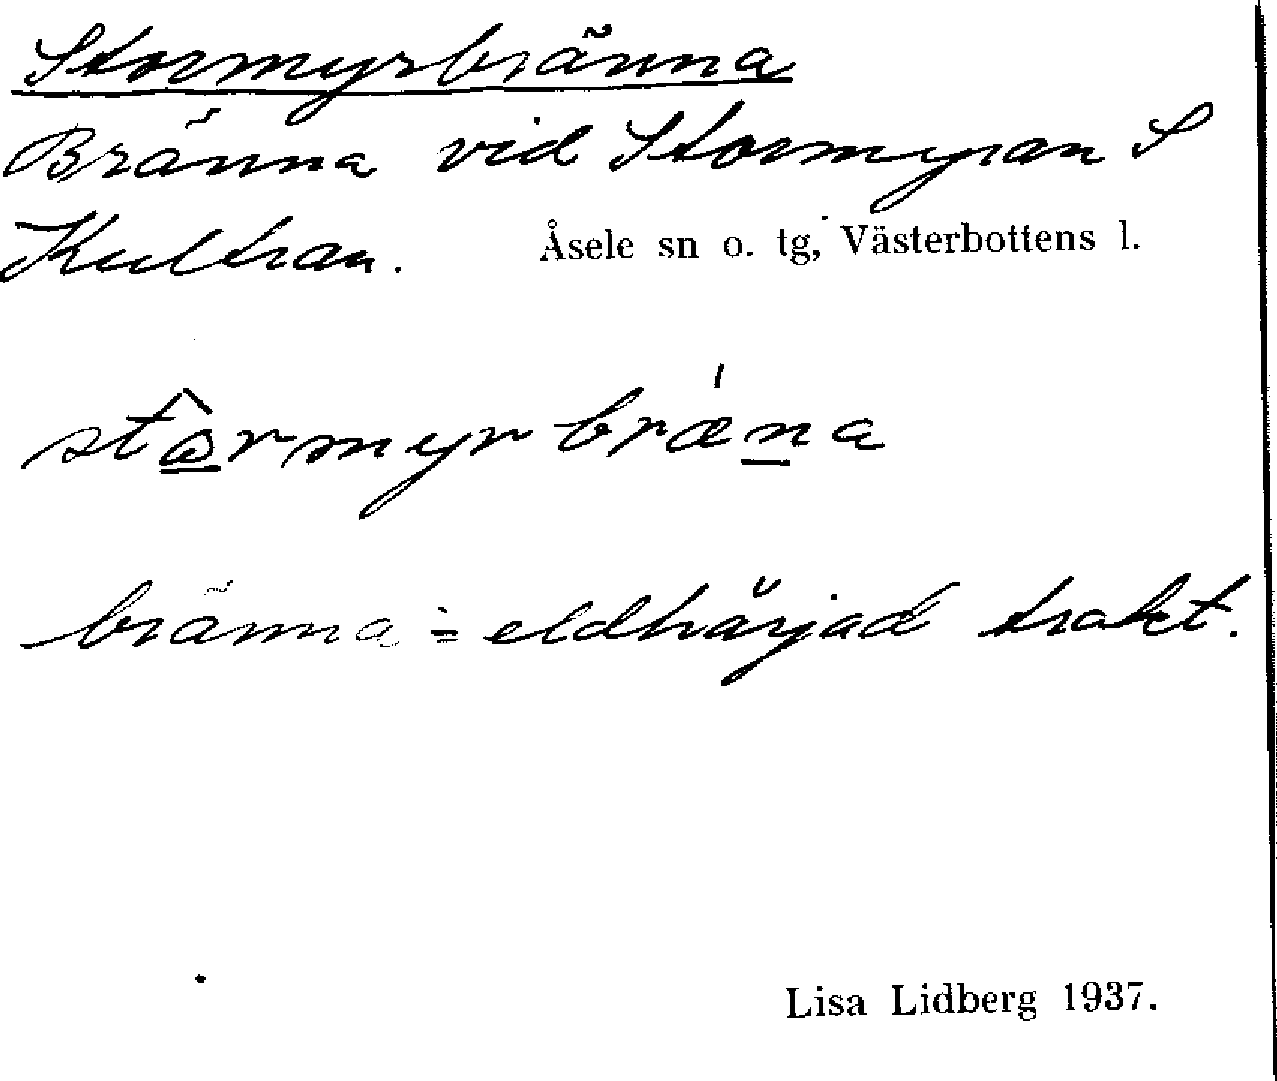 Stormyrbränna
Bränna vid Stormyran S
Kultran. Åsele sn o. tg, Västerbottens l.
stôrmyrbrǽna
bränna = eldhärjad trakt.
Lisa Lidberg 1937.